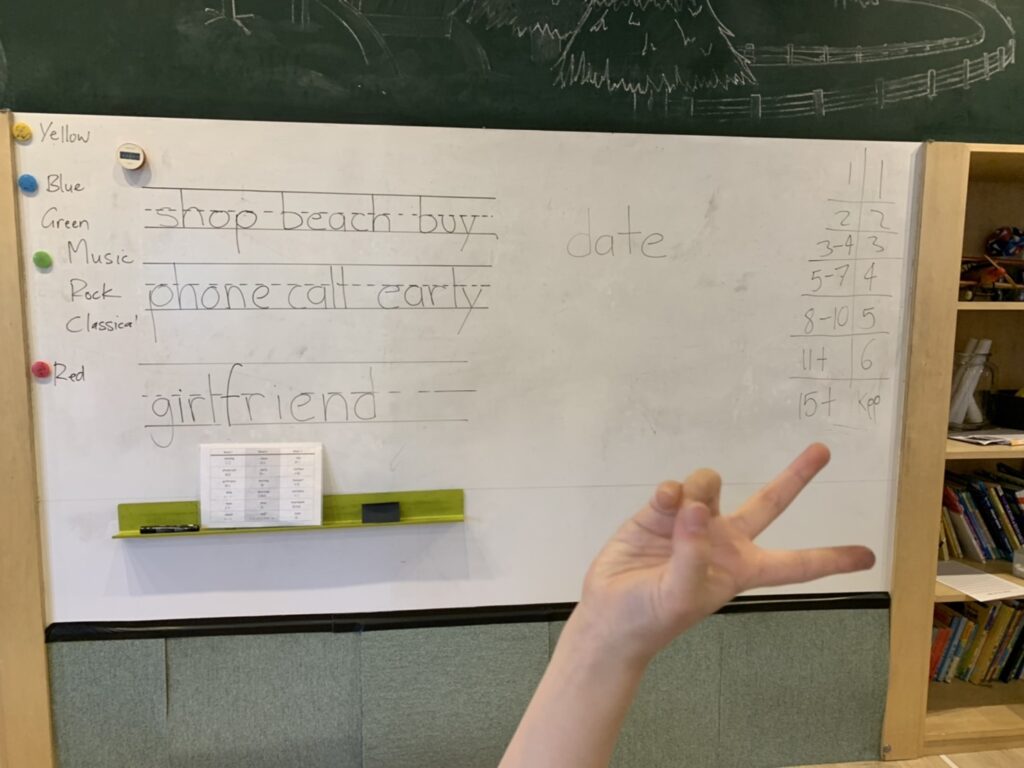 Yellow
Blue
Green
Music
Rock
Classical
Red
shop beach buy
phone call early
girlfriend
date
1 1
2 2
3-4 3
5-7 4
8-10 5
11+ 6
15+